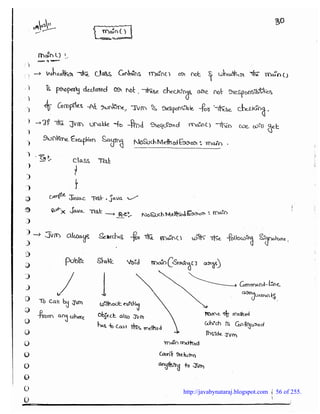 30
main()
main() :
→ whether the class Contains main() or not & whether the main()
is properly declared or not. these checkings are not responsibilities
of Compiler. At runtime, Jvm is responsible for these checking.
→ If the Jvm unable to find required main() then we will get
runtime Exception Saying NoSuchMethodError : main.
Ex:- class Test
{
}
Compile Javac Test.Java ✓
Run x Java Test → R.E:- NoSuchMethodError : main
→ Jvm always Searches for the main() with the following Signature.
public static void main(String[] args)
Command-line arguments
To Call by Jvm
from any where
without existing
object also Jvm
has to call this method
main method
can't return
anything to Jvm
name of method
which is Configured
inside Jvm
http://javabynataraj.blogspot.com 56 of 255.